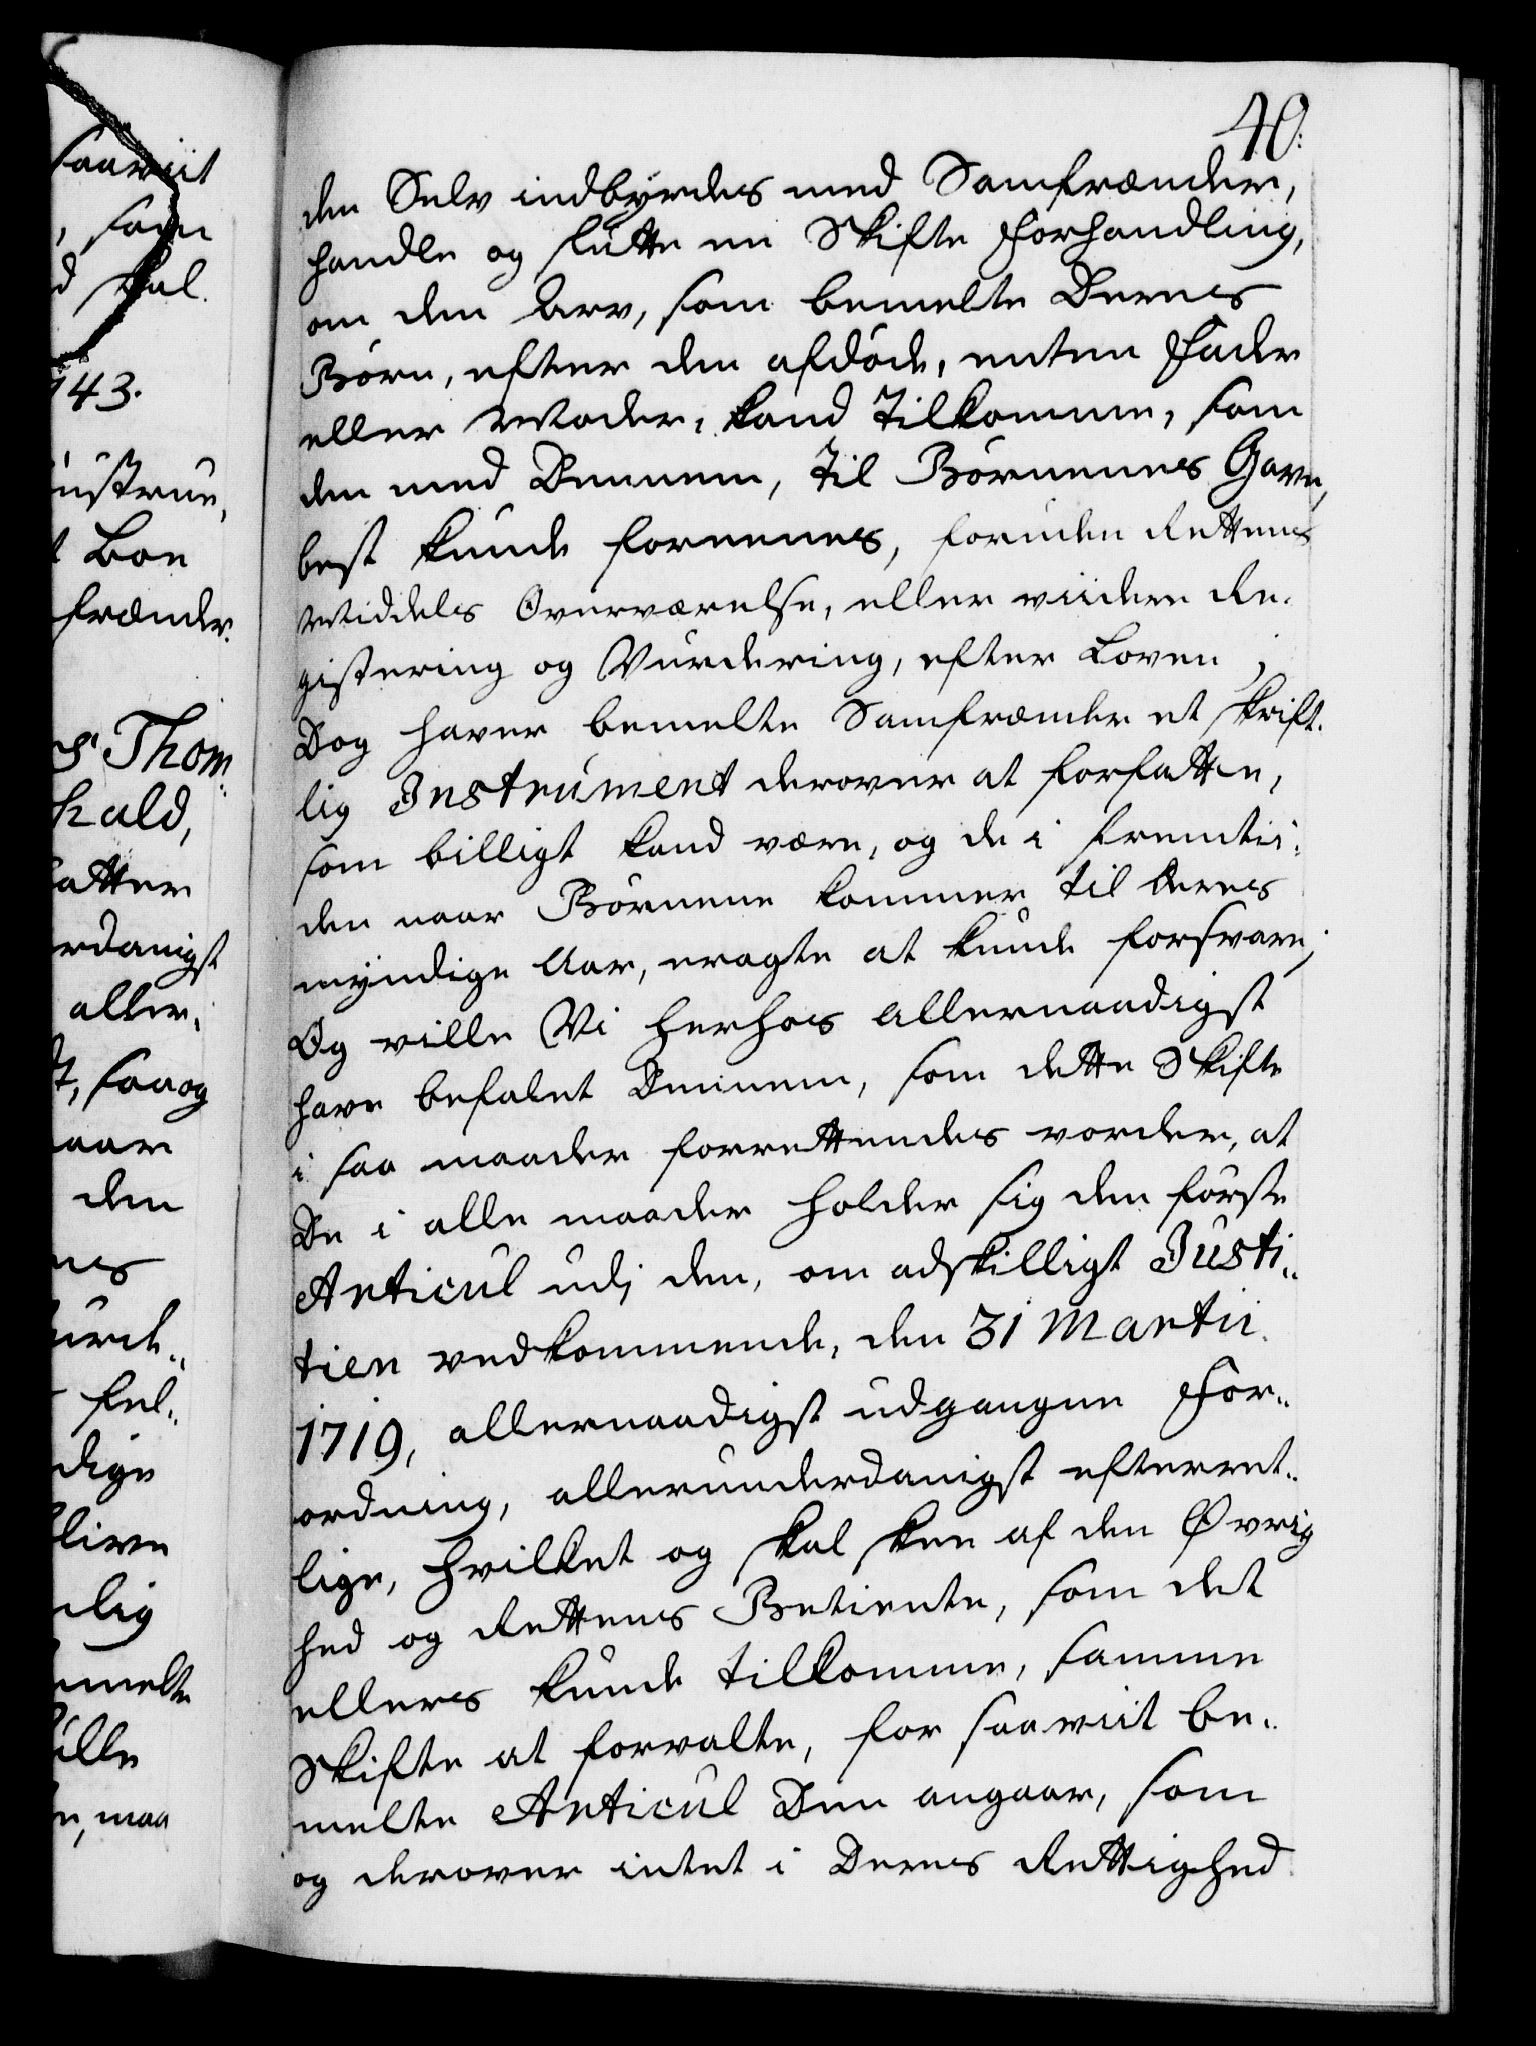 40.
den Selv indbyrdes med Samfrænder,
handle og slutte en Skifte Forhandling,
om den Arv, som bemelte Deres
Børn, efter den afdøde, enten Fader
eller Moder, kand tilkomme, som
den med Dennem, til Børnenes Gavn,
best kunde foreenes, foruden Rettens
Middels Overværelse, eller viidere Re-
gistering og Vurdering, efter Loven;
Dog haver bemelte Samfrænder et skrift-
lig Instrument derover at forfatte,
som billigt kand være, og de i fremtii-
den naar Børnene kommer til deres
myndige Aar, eragte at kunde forsvare;
Og ville Vi herhos allernaadigst
have befalet Dennem, som dette Skifte
i saa maader forrettendes vorder, at
De i alle maader holder sig den første
Articul udj den, om adskilligt Justi-
tien vedkommende, den 31 Martii
1719, allernaadigst udgangne For-
ordning, allerunderdanigst efterret-
lige, hvilket og skal skee af den Øvrig
hed og Rettens Betiente, som det
ellers kunde tilkomme, samme
Skifte at forvalte, for saaviit be-
melte Articul Dem angaar, som
og derover intet i Deres Rettighed
saaviit
, som
skal
143.
ustrue,
Boe
frænder.
Thom
hald,
atter
rdanigst
aller-
saa og
aar
den
es
urde-
fel-
dige
live
lig
melte
ille
maa